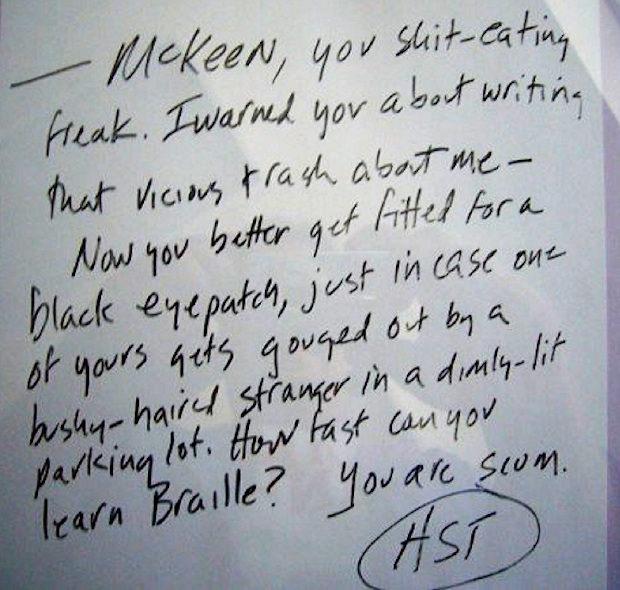 — McKeen, you shit-eating
freak. I warned you about writing
that vicious trash about me —
Now you better get fitted for a
black eyepatch, just in case one
of yours gets gouged out by a
bushy-haired stranger in a dimly-lit
parking lot. How fast can you
learn Braille? You are scum.
HST